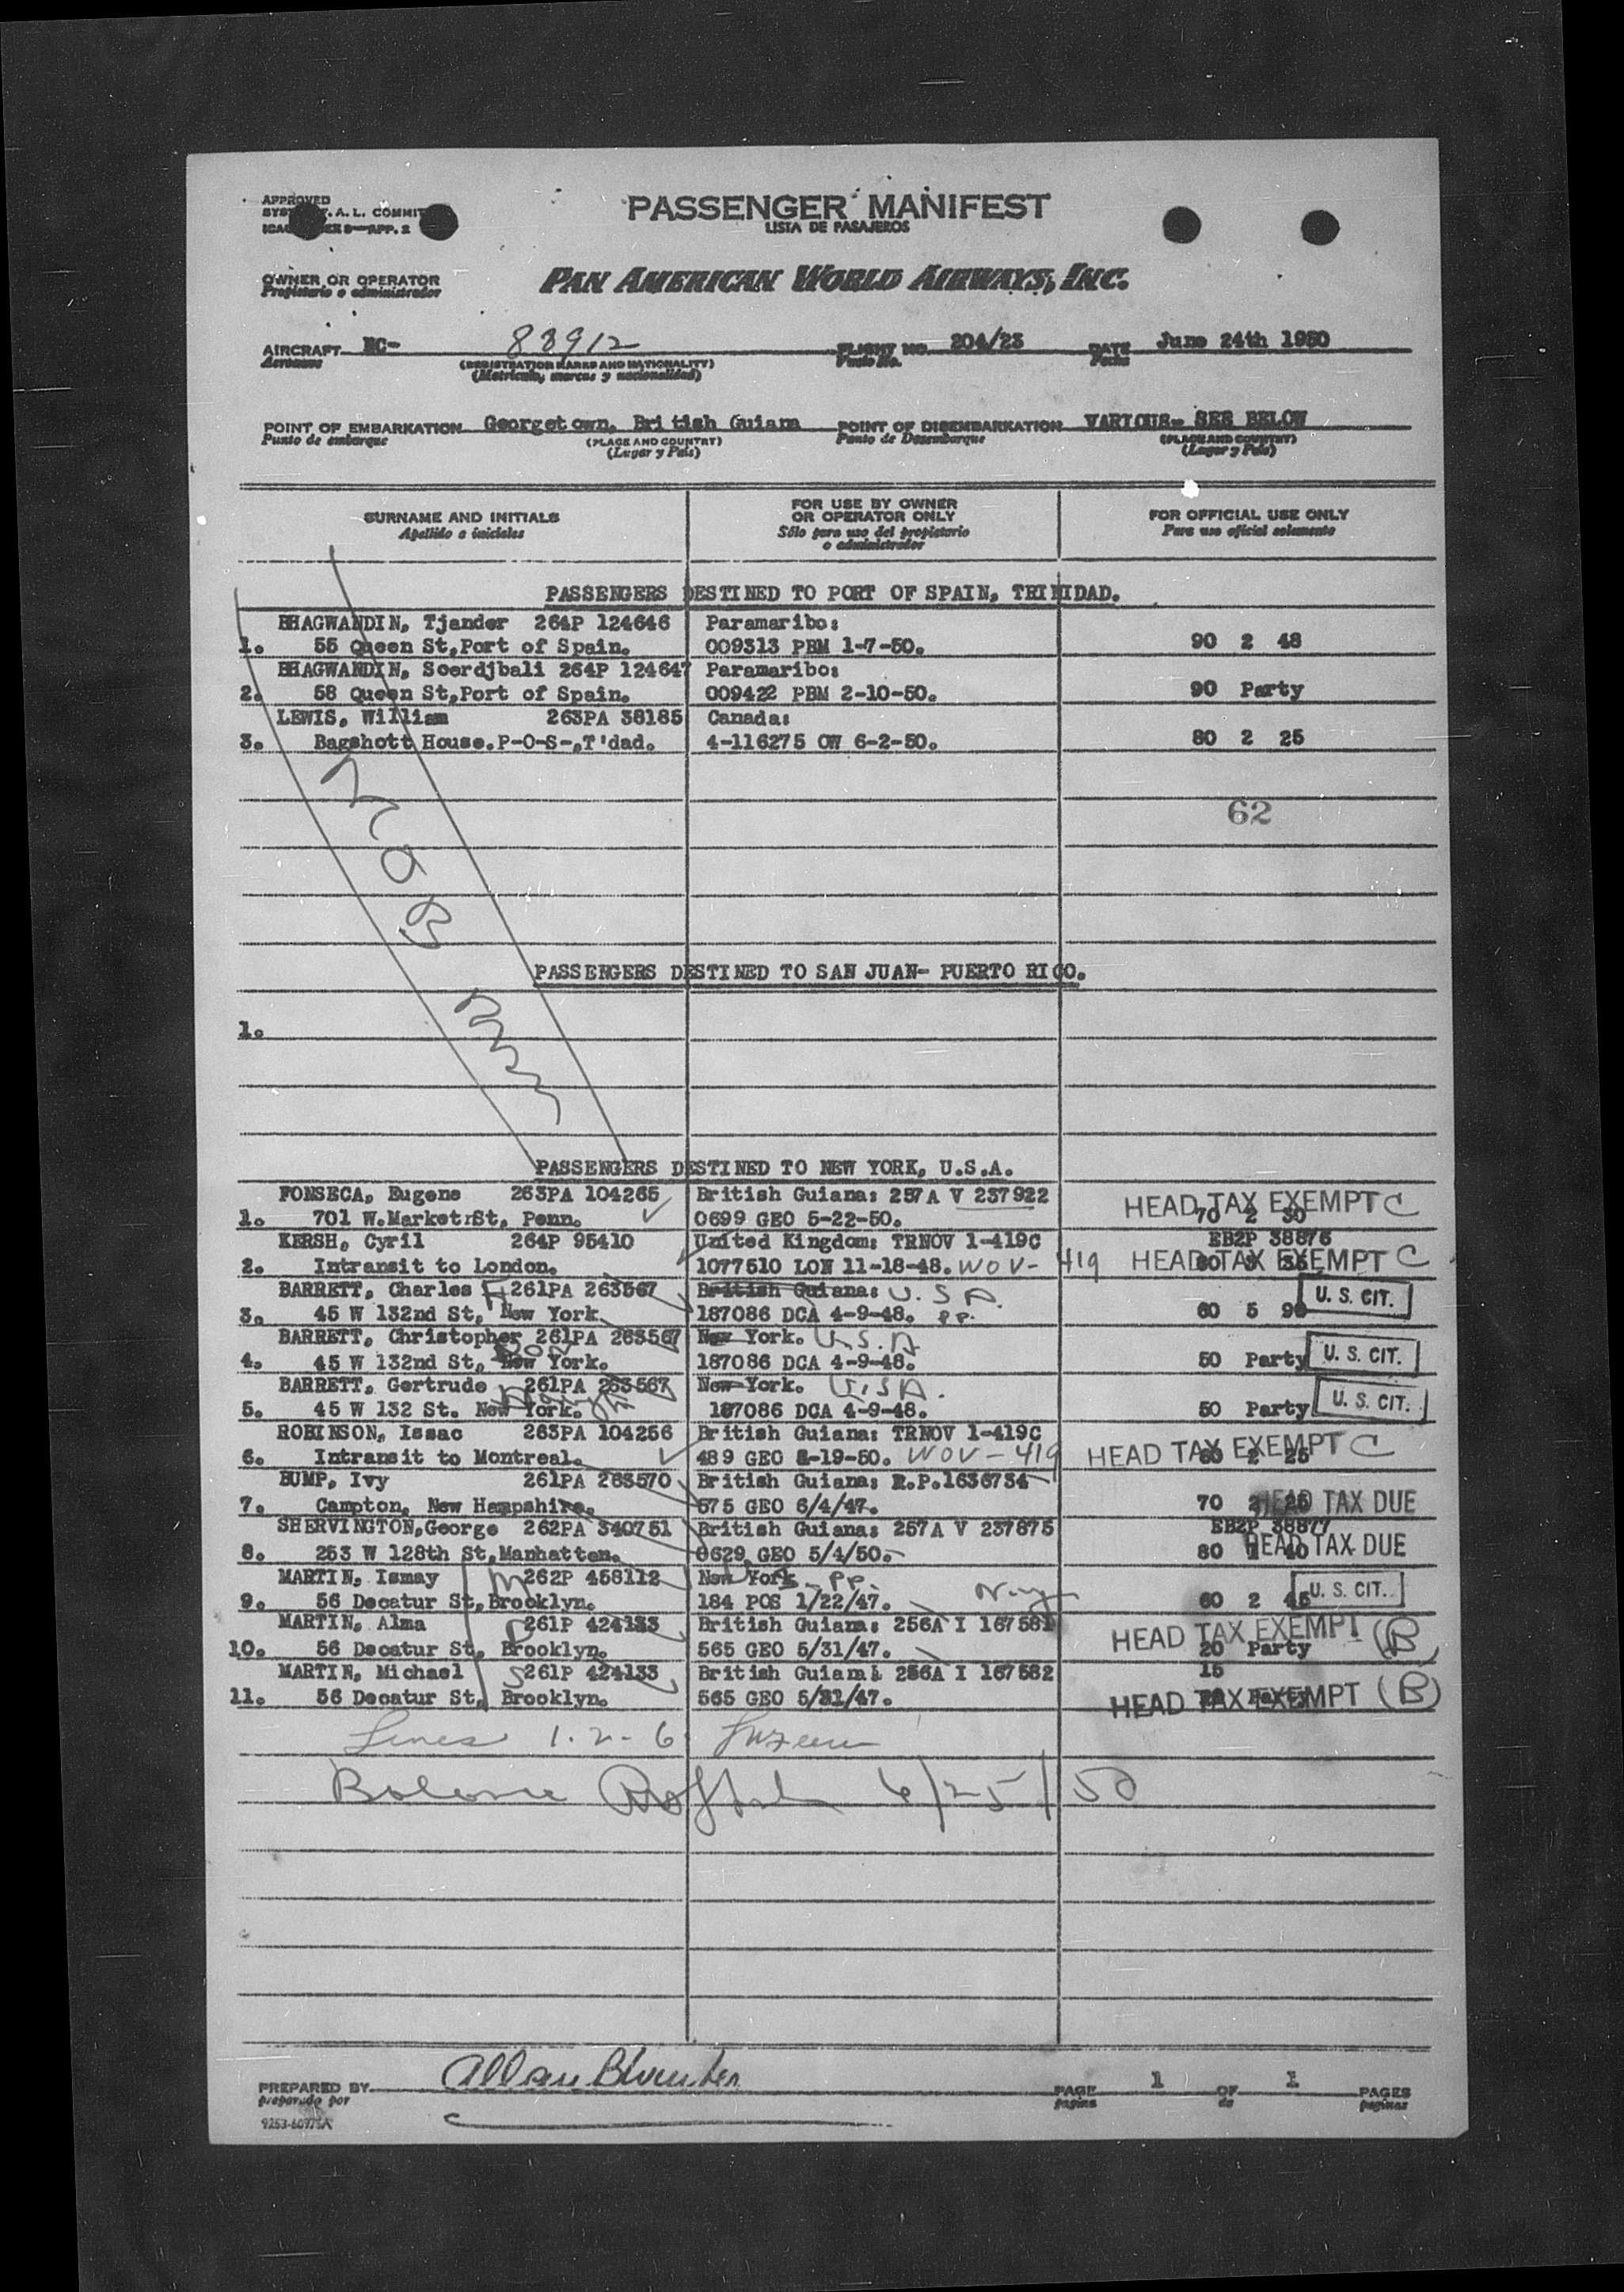 APPROVED
PASSENGER MANIFEST
LISTA DE PASAJEROS
OWNER OR OPERATOR
Propietario o administrador
PAN AMERICAN WORLD AIRWAYS, INC.
AIRCRAFT NC- 88912 FLIGHT NO. 204/23 DATE June 24th 1950
Aeronave (REGISTRATION MARKS AND NATIONALITY) Vuelo No. Fecha
(Matrícula, marcas y nacionalidad)
POINT OF EMBARKATION Georgetown, British Guiana POINT OF DISEMBARKATION VARIOUS- SEE BELOW
Punto de embarque (PLACE AND COUNTRY) Punto de Desembarque (PLACE AND COUNTRY)
(Lugar y País) (Lugar y País)
SURNAME AND INITIALS FOR USE BY OWNER OR OPERATOR ONLY FOR OFFICIAL USE ONLY
Apellido e iniciales Sólo para uso del propietario o administrador Para uso oficial solamente
PASSENGERS DESTINED TO PORT OF SPAIN, TRINIDAD.
BHAGWANDIN, Tjander 264P 124646 Paramaribo:
1. 55 Queen St,Port of Spain. 009313 PBM 1-7-50. 90 2 48
BHAGWANDIN, Soerdjbali 264P 124647 Paramaribo:
2. 58 Queen St,Port of Spain. 009422 PBM 2-10-50. 90 Party
LEWIS, William 263PA 38185 Canada:
3. Bagshott House.P-O-S-,T'dad. 4-116275 OW 6-2-50. 80 2 25
62
PASSENGERS DESTINED TO SAN JUAN- PUERTO RICO.
1.
PASSENGERS DESTINED TO NEW YORK, U.S.A.
FONSECA, Eugene 263PA 104265 British Guiana: 257A V 237922 HEAD TAX EXEMPT C
1. 701 W.Market St, Penn. 0699 GEO 5-22-50. 70 2 30
KERSH, Cyril 264P 95410 United Kingdom: TRNOV 1-419C EB2P 38876
2. Intransit to London. 1077510 LON 11-18-48. WOV- 419 HEAD TAX EXEMPT C
BARRETT, Charles F 261PA 263567 British Guiana: U.S.A. U. S. CIT.
3. 45 W 132nd St, New York. 187086 DCA 4-9-48. PP. 60 5 90
BARRETT, Christopher 261PA 263567 New York. U.S.A
4. 45 W 132nd St, New York. 187086 DCA 4-9-48. 50 Party U. S. CIT.
BARRETT, Gertrude 261PA 263567 New York. U.S.A.
5. 45 W 132 St. New York. 187086 DCA 4-9-48. 50 Party U. S. CIT.
ROBINSON, Issac 263PA 104256 British Guiana: TRNOV 1-419C
6. Intransit to Montreal. 489 GEO 2-19-50. WOV-419 HEAD TAX EXEMPT C
BUMP, Ivy 261PA 263570 British Guiana: R.P.1636734
7. Campton, New Hampshire. 575 GEO 6/4/47. 70 2 HEAD TAX DUE
SHERVINGTON,George 262PA 340751 British Guiana: 257A V 237875 EB2P 38877
8. 253 W 128th St,Manhatten. 0629 GEO 5/4/50. 80 HEAD TAX DUE
MARTIN, Ismay M 262P 458112 New York PP.
9. 56 Decatur St,Brooklyn. 184 POS 1/22/47. 60 2 45 U. S. CIT.
MARTIN, Alma 261P 424133 British Guiana: 256A I 167581 HEAD TAX EXEMPT (B)
10. 56 Decatur St, Brooklyn. 565 GEO 5/31/47. 20 Party
MARTIN, Michael S 261P 424133 British Guiana: 256A I 167582 15
11. 56 Decatur St, Brooklyn. 565 GEO 5/31/47. HEAD TAX EXEMPT (B)
Lines 1.2-6
6/25/50
PREPARED BY PAGE 1 OF 1 PAGES
preparado por página de páginas